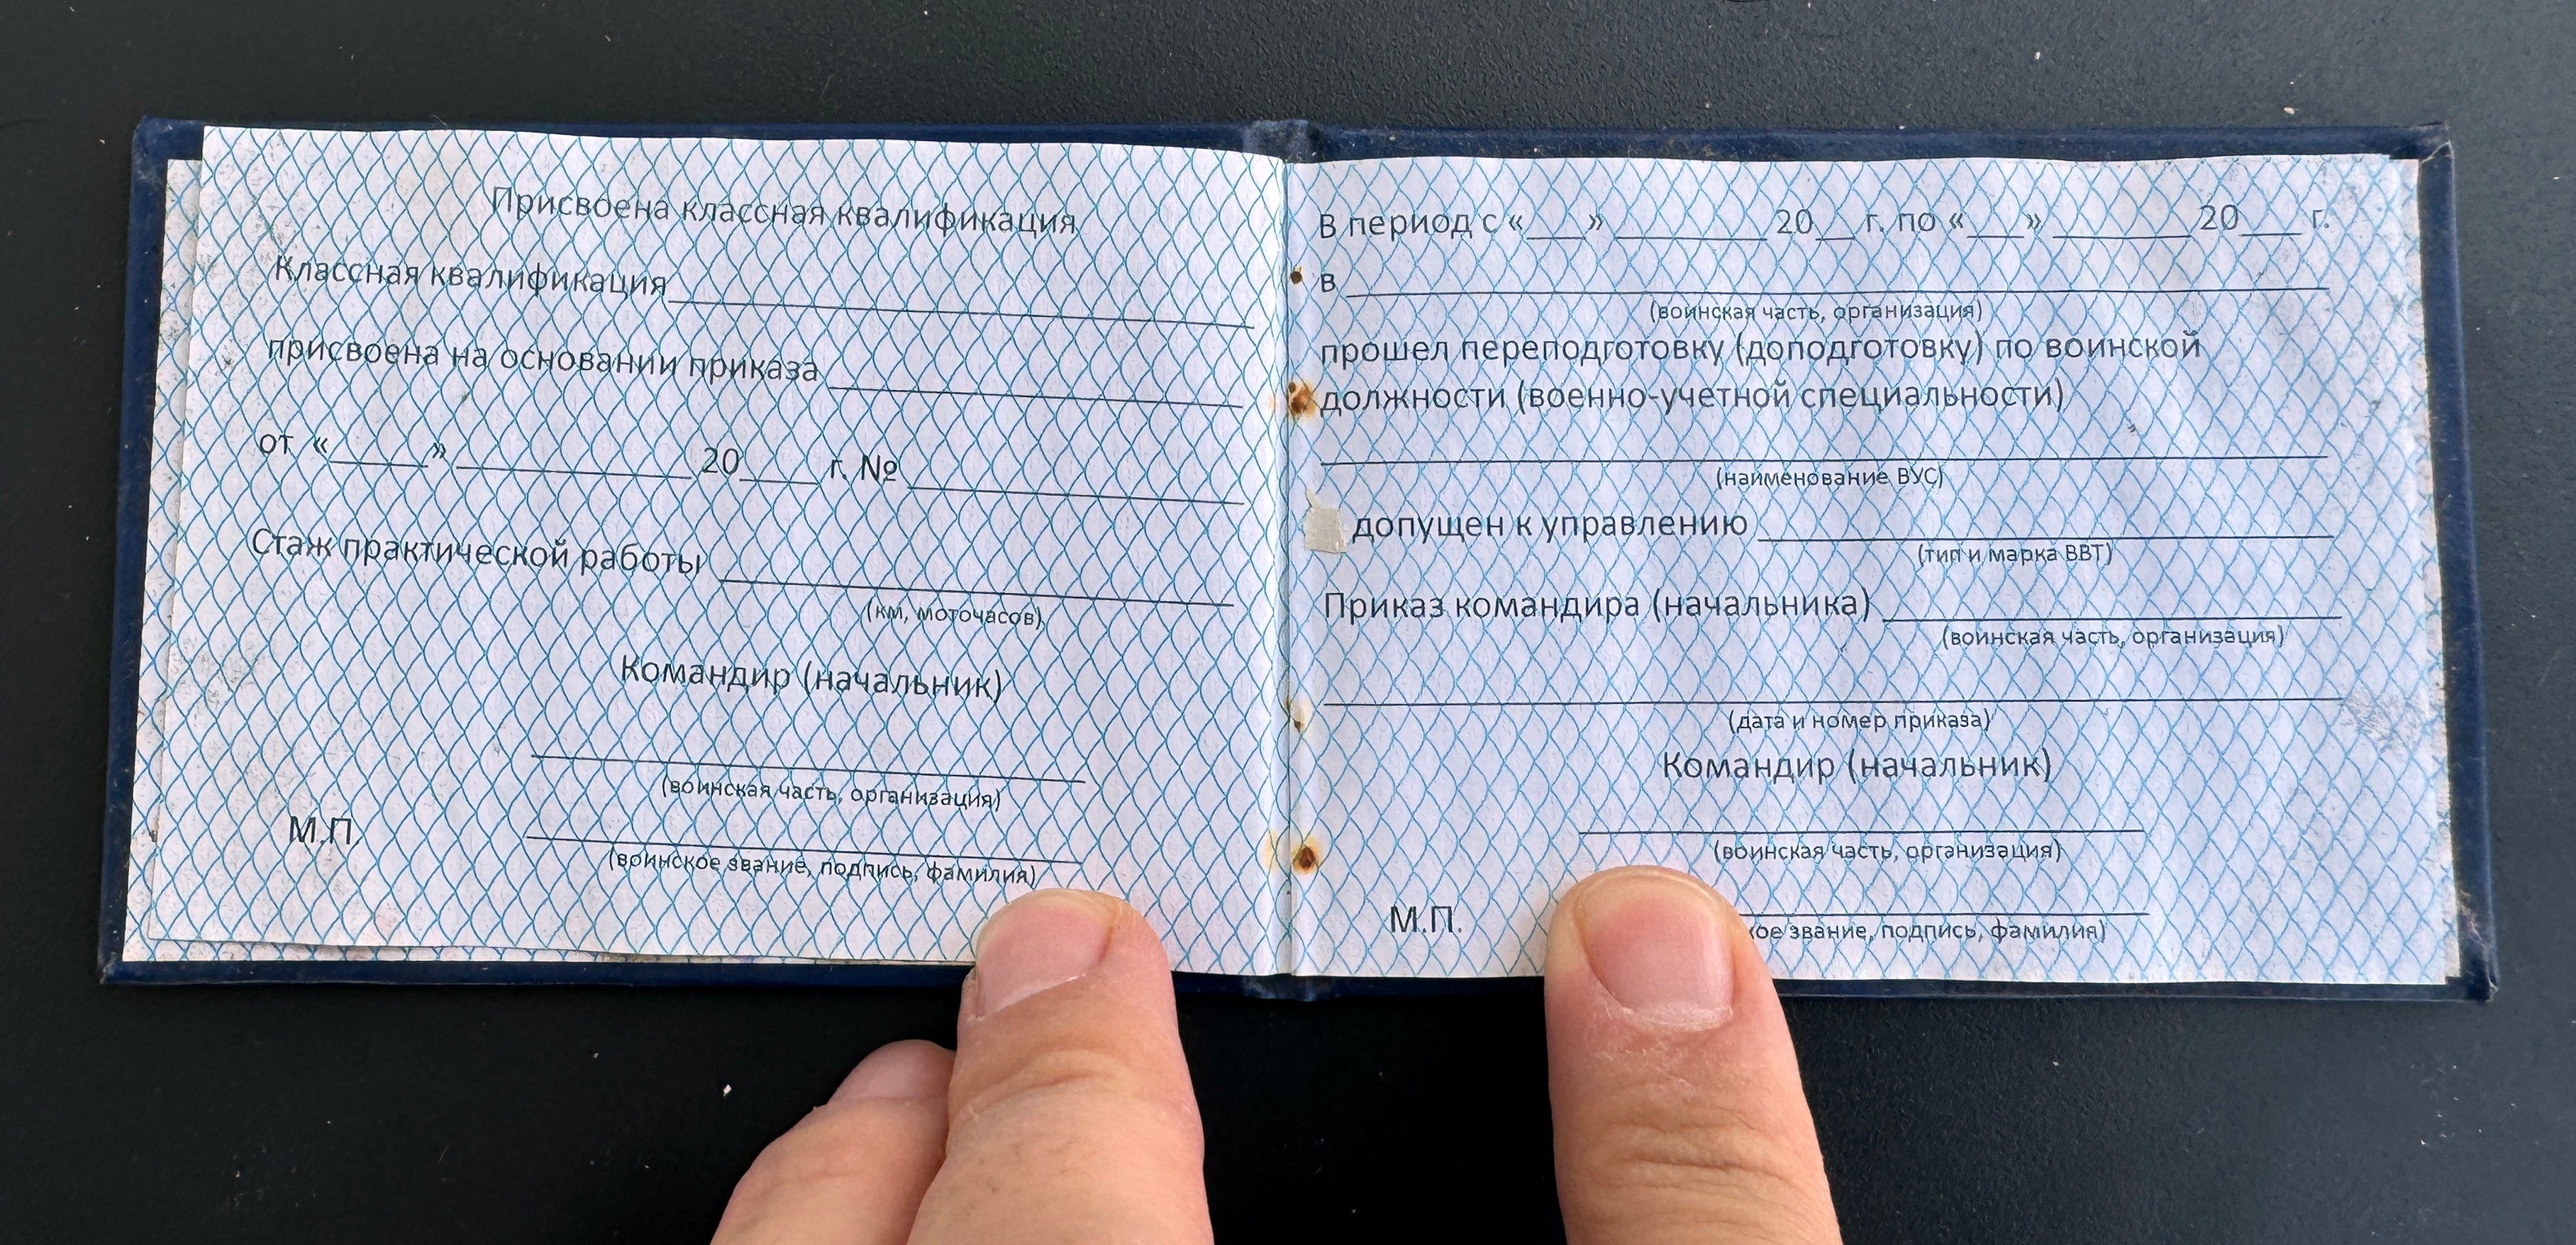 Присвоена классная квалификация
Классная квалификация
присвоена на основании приказа
от «____» ________ 20____ г. №
Стаж практической работы
(км, моточасов)
Командир (начальник)
(воинская часть, организация)
М.П.
(воинское звание, подпись, фамилия)
В период с «___» ________ 20__ г. по «___» ________ 20___ г.
в
(воинская часть, организация)
прошел переподготовку (доподготовку) по воинской
должности (военно-учетной специальности)
(наименование ВУС)
допущен к управлению
(тип и марка ВВТ)
Приказ командира (начальника)
(воинская часть, организация)
(дата и номер приказа)
Командир (начальник)
(воинская часть, организация)
М.П.
звание, подпись, фамилия)